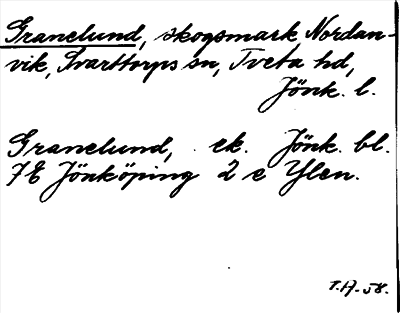 Granelund, skogsmark, Nordan-
vik, Svarttorps sn, Tveta hd,
Jönk. l.
Granelund, ek. Jönk. bl.
7E Jönköping 2 e Ylen.
T.H. -58.